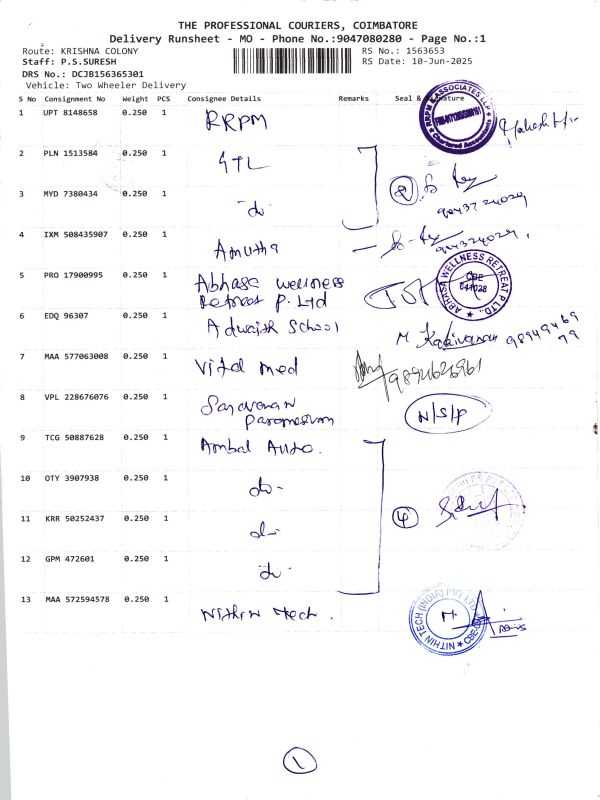 THE PROFESSIONAL COURIERS, COIMBATORE
Delivery Runsheet - MO - Phone No.:9047080280 - Page No.:1
Route: KRISHNA COLONY
RS No.: 1563653
Staff: P.S.SURESH
RS Date: 10-Jun-2025
DRS No.: DCJB156365301
Vehicle: Two Wheeler Delivery
S No Consignment No Weight PCS Consignee Details Remarks Seal & Signature
1 UPT 8148658 0.250 1 RRPM
2 PLN 1513584 0.250 1 GTL
3 MYD 7380434 0.250 1 do- ② 9043724029
4 IXM 508435907 0.250 1 Amutha 9043724029
5 PRO 17900995 0.250 1 Abhasa wellness
Retreat P. Ltd
ABHASA WELLNESS RETREAT P LTD., CBE 641028
6 EDQ 96307 0.250 1 Adwaith School
7 MAA 577063008 0.250 1 Vital med
8 VPL 228676076 0.250 1 Saravanan
Parameswaran
N/S/P
9 TCG 50887628 0.250 1 Ambal Auto.
10 OTY 3907938 0.250 1 do-
11 KRR 50252437 0.250 1 do- ④
12 GPM 472601 0.250 1 do-
13 MAA 572594578 0.250 1 Nithin Tech.
NITHIN TECH (INDIA) PVT LTD
①